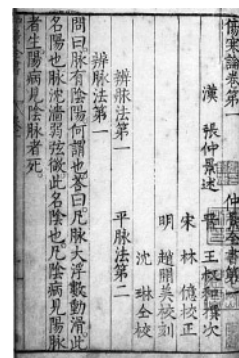 傷寒論卷第一
仲景全書第一
漢 張仲景述
晉 王叔和撰次
宋 林 億校正
明 趙開美校刻
沈 琳仝校
辨脉法第一 平脉法第二
辨脉法第一
問曰脉有陰陽何謂也答曰凡脉大浮數動滑此
名陽也脉沈濇弱弦微此名陰也凡陰病見陽脉
者生陽病見陰脉者死